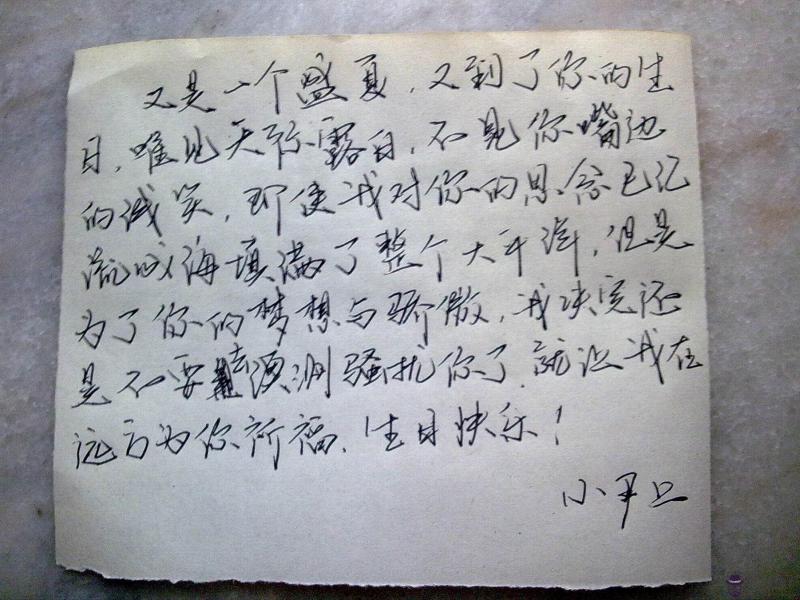 又是一个盛夏，又到了你的生
日，唯见天际露白，不见你嘴边
的诚笑，即使我对你的思念已经
流成海填满了整个太平洋，但是
为了你的梦想与骄傲，我决定还
是不要去澳洲骚扰你了，就让我在
远方为你祈福，生日快乐！
小